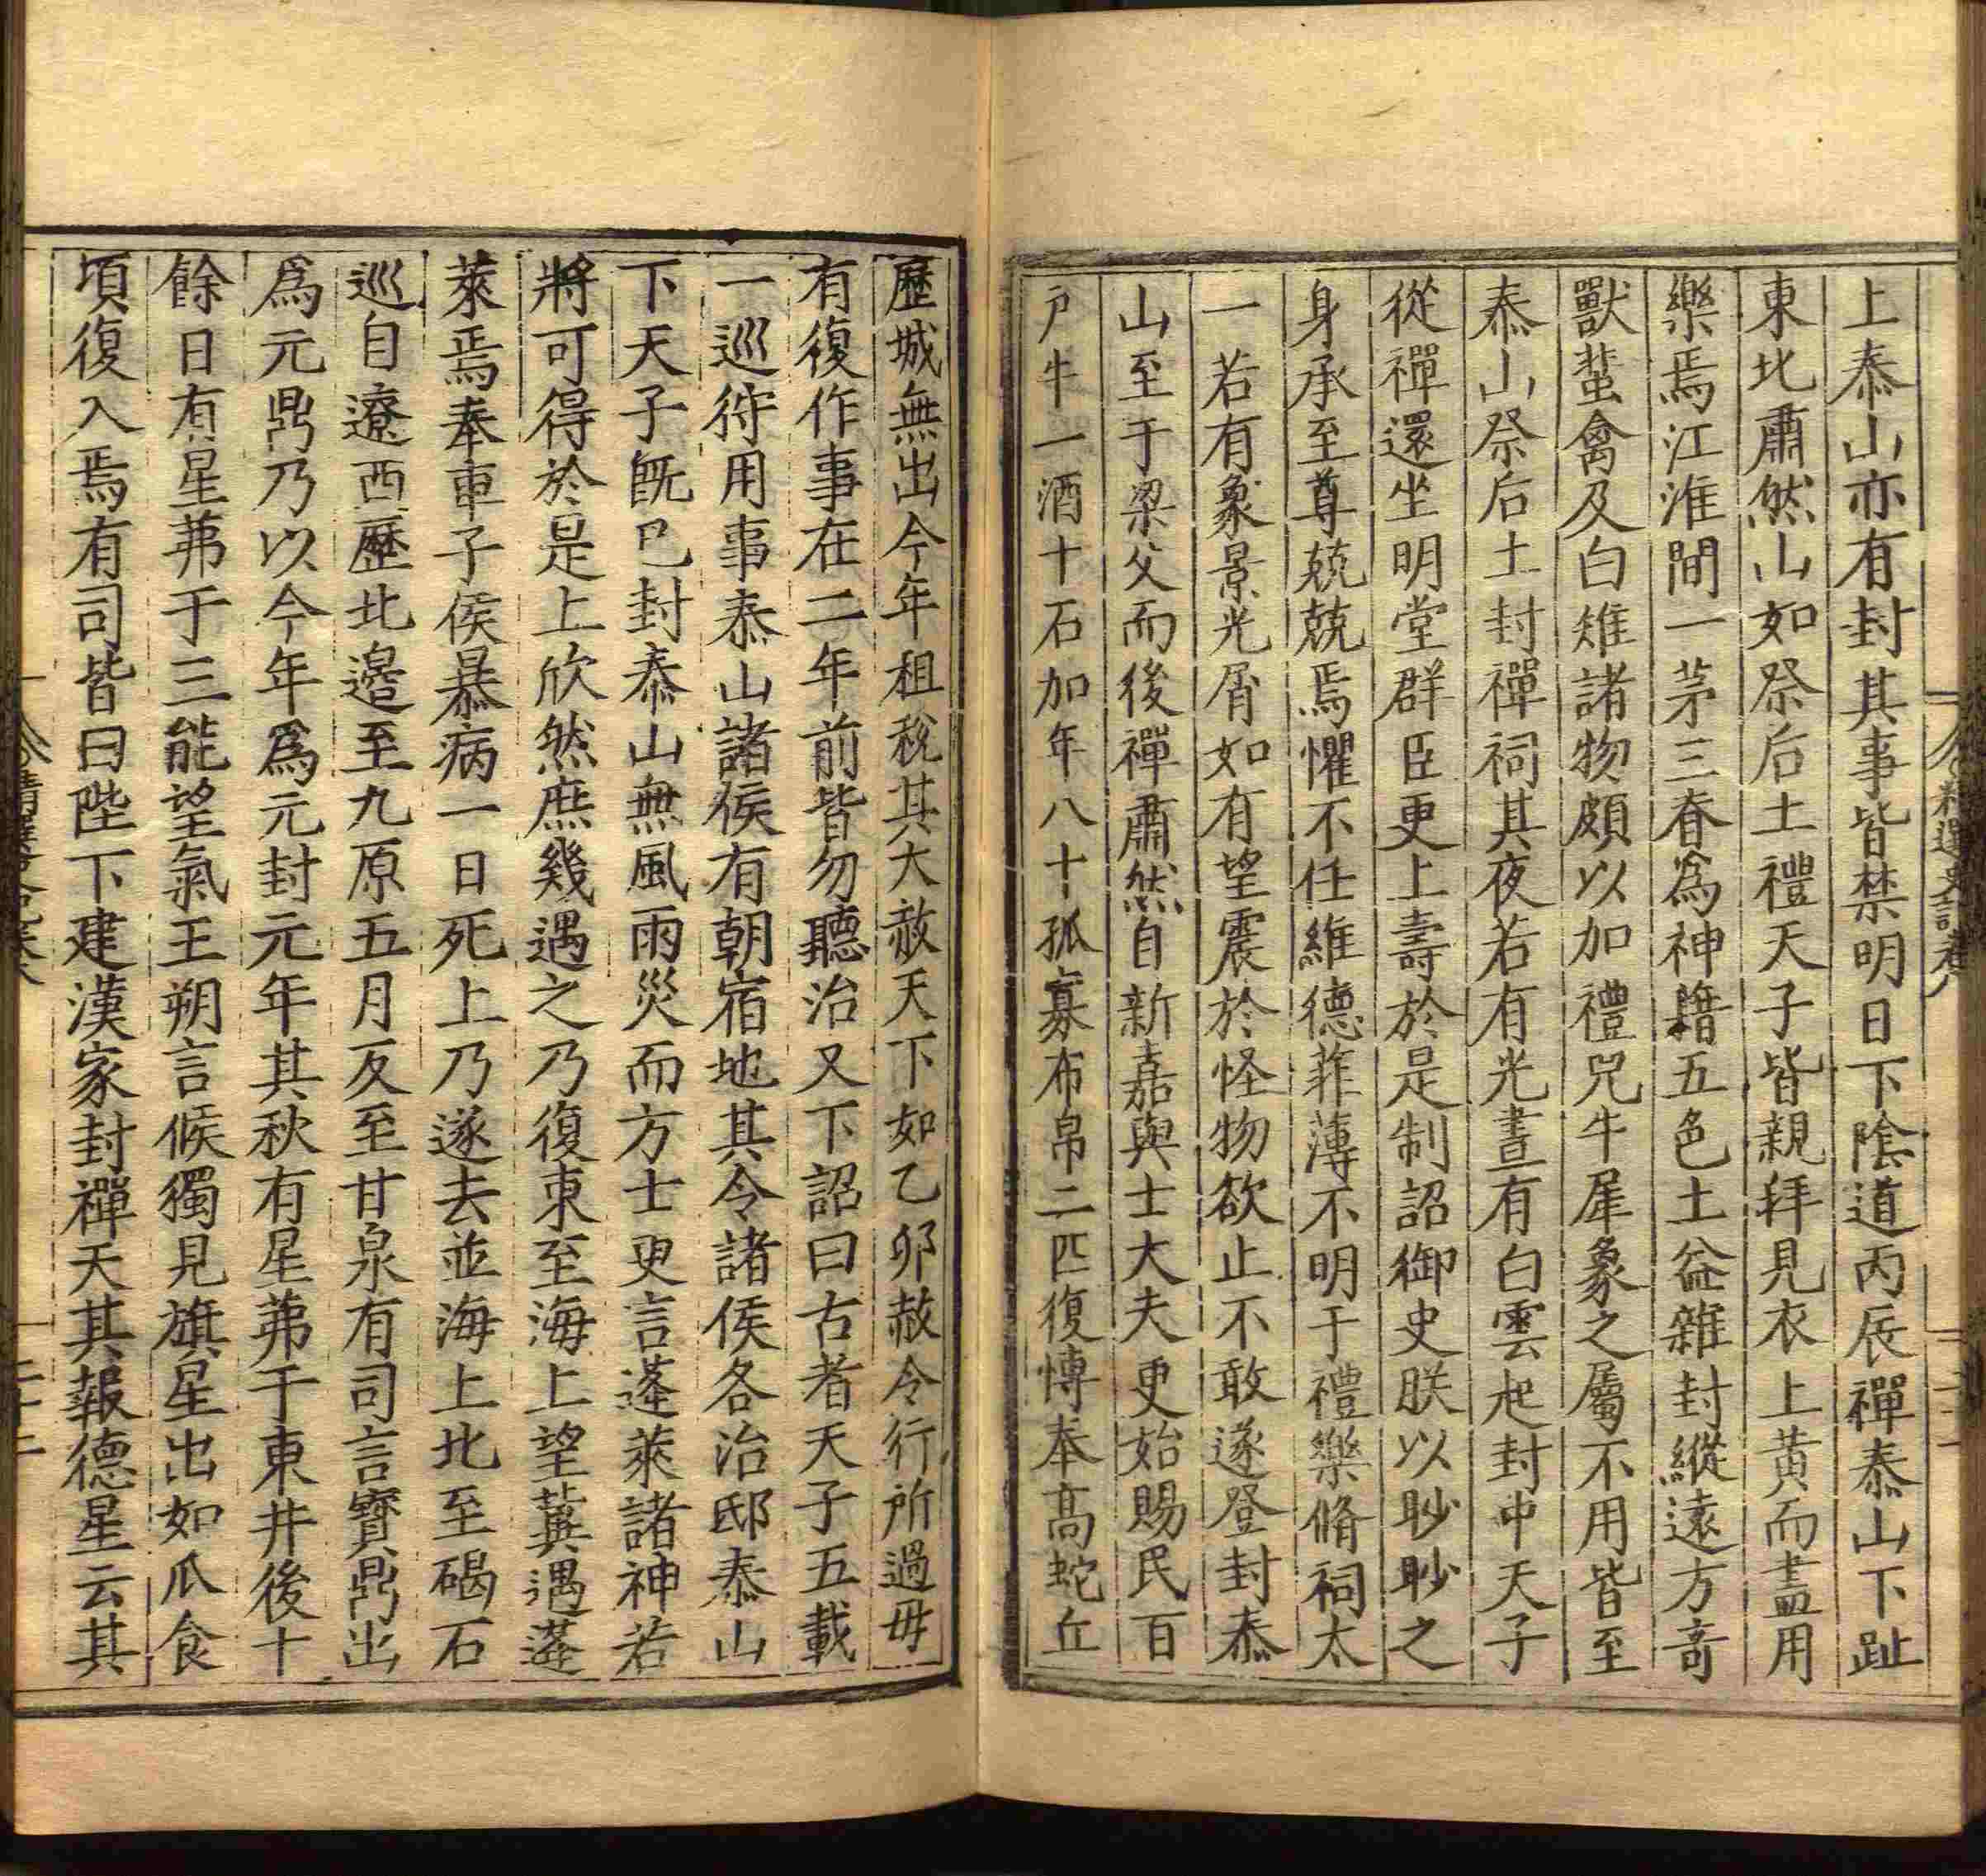 上泰山亦有封其事皆禁明日下陰道丙辰禪泰山下趾
東北肅然山如祭后土禮天子皆親拜見衣上黃而盡用
樂焉江淮間一茅三脊爲神籍五色土益雜封縱遠方奇
獸蜚禽及白雉諸物頗以加禮兕牛犀象之屬不用皆至
泰山祭后土封禪祠其夜若有光晝有白雲起封中天子
從禪還坐明堂群臣更上壽於是制詔御史朕以眇眇之
身承至尊兢兢焉懼不任維德菲薄不明于禮樂脩祠太
一若有象景光屑如有望震於怪物欲止不敢遂登封泰
山至于梁父而後禪肅然自新嘉與士大夫更始賜民百
戶牛一酒十石加年八十孤寡布帛二匹復愽奉高蛇丘
歷城無出今年租稅其大赦天下如乙卯赦令行所過毋
有復作事在二年前皆勿聽治又下詔曰古者天子五載
一巡狩用事泰山諸侯有朝宿地其令諸侯各治邸泰山
下天子既已封泰山無風雨災而方士更言蓬萊諸神若
將可得於是上欣然庶幾遇之乃復東至海上望冀遇蓬
萊焉奉車子侯暴病一日死上乃遂去並海上北至碣石
巡自遼西歷北邊至九原五月反至甘泉有司言寶鼎出
爲元鼎乃以今年爲元封元年其秋有星茀于東井後十
餘日有星茀于三能望氣王朔言候獨見旗星出如瓜食
頃復入焉有司皆曰陛下建漢家封禪天其報德星云其